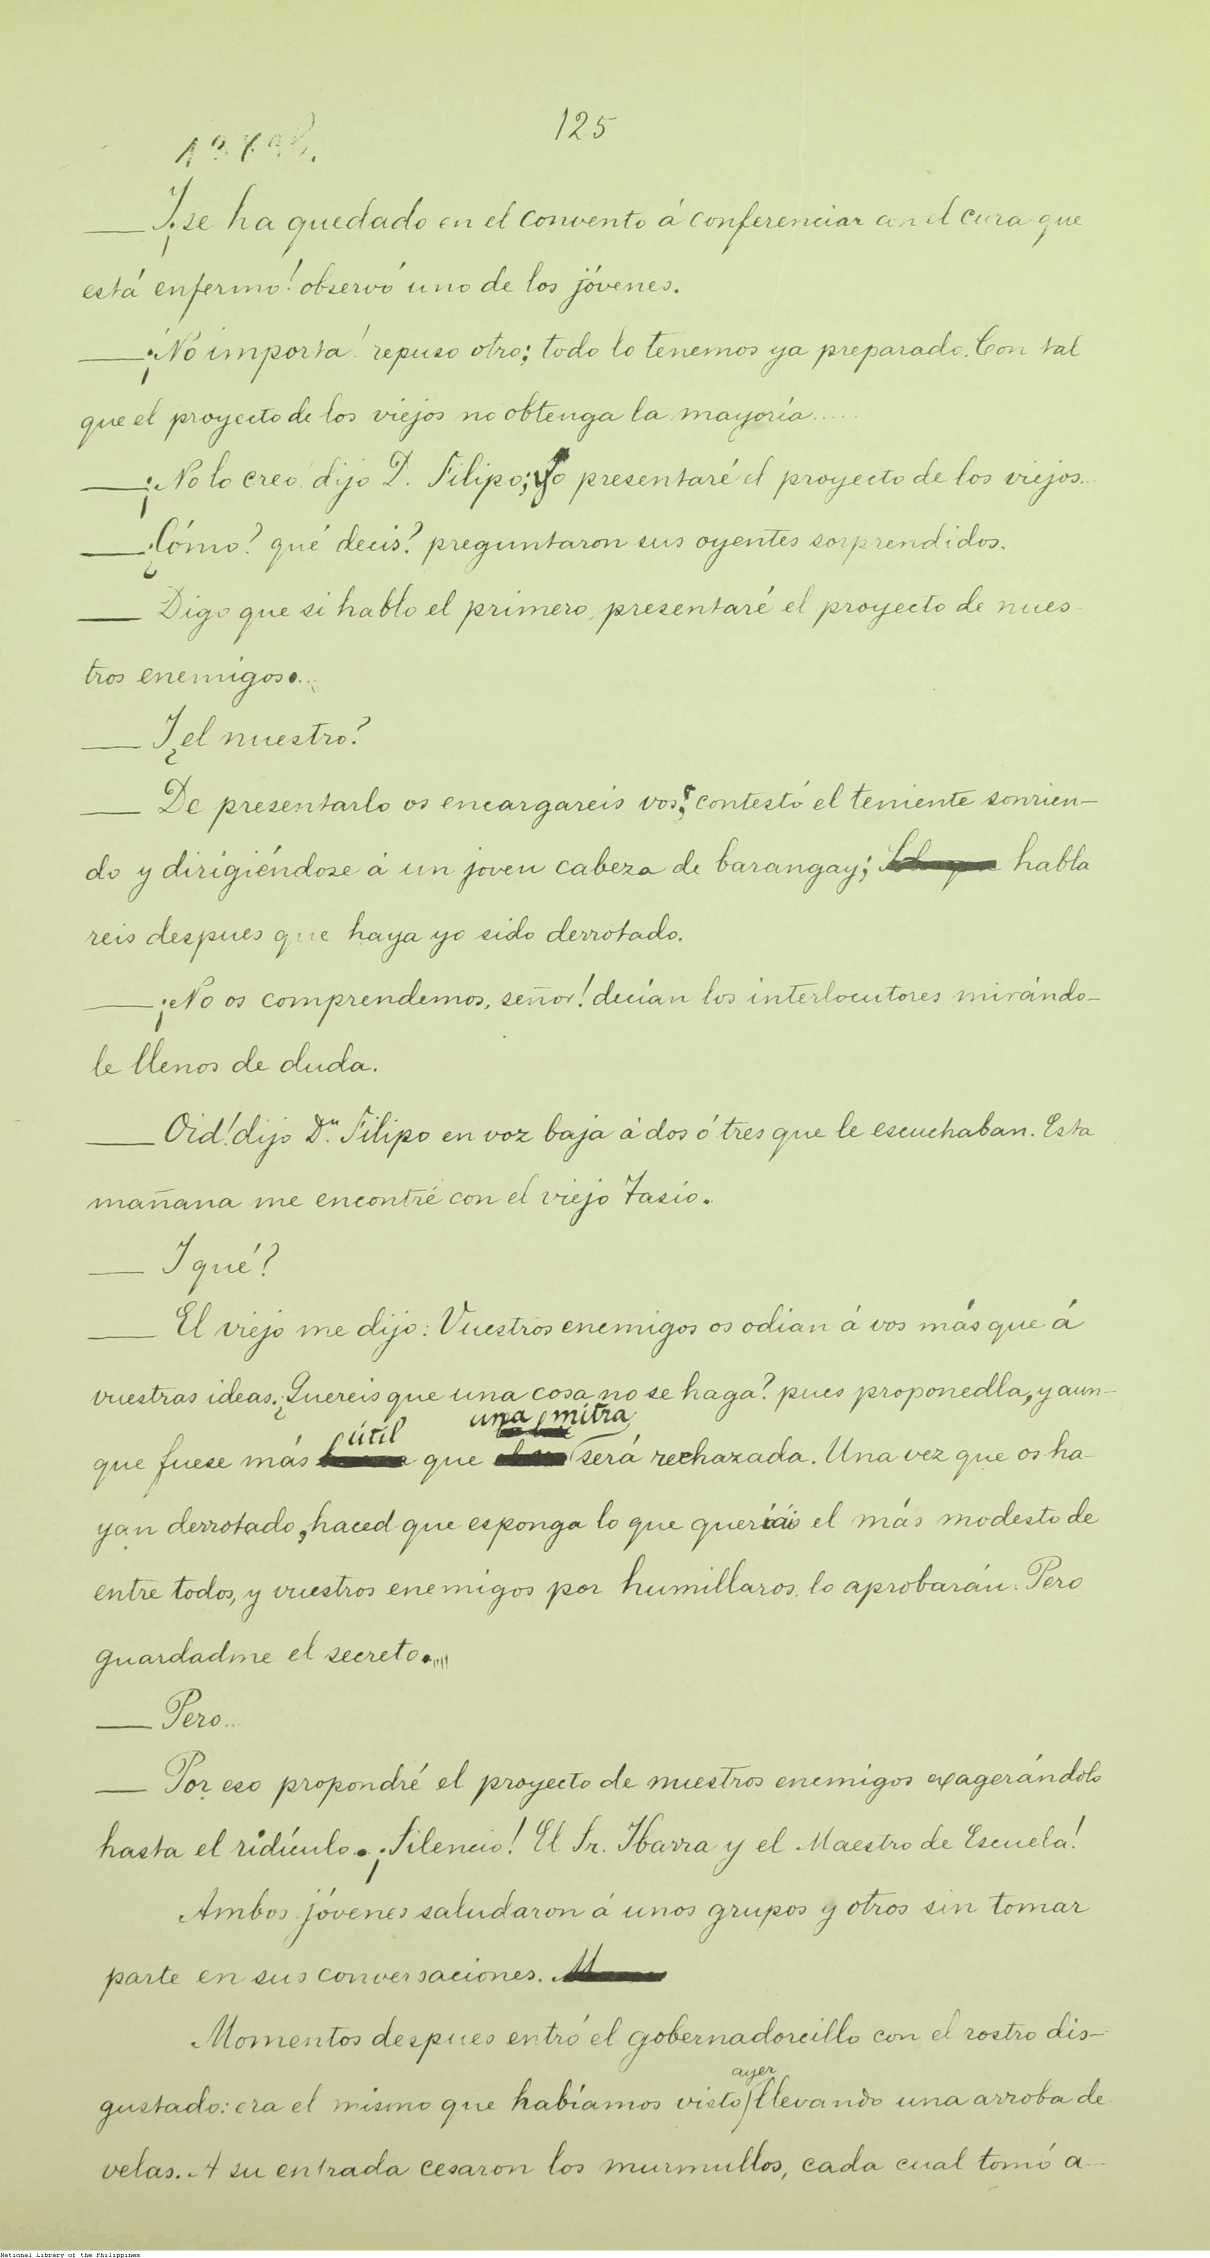 125
— Y ¡se ha quedado en el convento á conferenciar con el cura que
está enfermo! observó uno de los jóvenes.
— ¡No importa! repuso otro; todo lo tenemos ya preparado. Con tal
que el proyecto de los viejos no obtenga la mayoría.....
— ¡No lo creo! dijo D. Filipo; yo presentaré el proyecto de los viejos...
— ¿Cómo? qué decís? preguntaron sus oyentes sorprendidos.
— Digo que si hablo el primero, presentaré el proyecto de nues-
tros enemigos...
— Y ¿el nuestro?
— De presentarlo os encargareis vos; contestó el teniente sonrien-
do y dirigiéndose á un joven cabeza de barangay; habla
reis despues que haya yo sido derrotado.
— ¡No os comprendemos, señor! decían los interlocutores mirándo-
le llenos de duda.
— Oid! dijo Dn. Filipo en voz baja á dos ó tres que le escuchaban. Esta
mañana me encontré con el viejo Tasio.
— Y qué?
— El viejo me dijo: Vuestros enemigos os odian á vos más que á
vuestras ideas. ¿Quereis que una cosa no se haga? pues proponedla, y aun-
que fuese más útil que una mitra será rechazada. Una vez que os ha-
yan derrotado, haced que esponga lo que queríais el más modesto de
entre todos, y vuestros enemigos por humillaros, lo aprobarán. Pero
guardadme el secreto.
— Pero...
— Por eso propondré el proyecto de nuestros enemigos exagerándolo
hasta el ridículo. ¡Silencio! El Sr. Ibarra y el Maestro de Escuela!
Ambos jóvenes saludaron á unos grupos y otros sin tomar
parte en sus conversaciones.
Momentos despues entró el gobernadorcillo con el rostro dis-
gustado: era el mismo que habíamos visto ayer llevando una arroba de
velas. A su entrada cesaron los murmullos, cada cual tomó a-
National Library of the Philippines